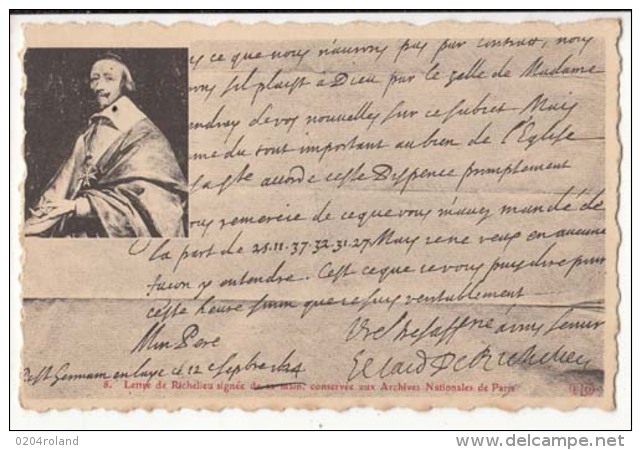 ce que nous n'aurons pas par contract, nous
s'il plaist à Dieu par le zelle de Madame
de vos nouvelles sur ce subiet Mais
du tout important au bien de l'Eglise
accorde ceste Dispence promptement
vous remercie de ce que vous m'aues mandé de
la part de 25.11.37.32.31.27. Mais ie ne veus en aucune
facon y entendre. C'est ce que ie vous puis dire pour
ceste heure sinon que ie suis veritablement
Mon Pere
Vre
De St Germain en laye ce 12 Septbre
Le Card De Richelieu
8. Lettre de Richelieu signée de sa main, conservée aux Archives Nationales de Paris
0204roland
delcampe.net